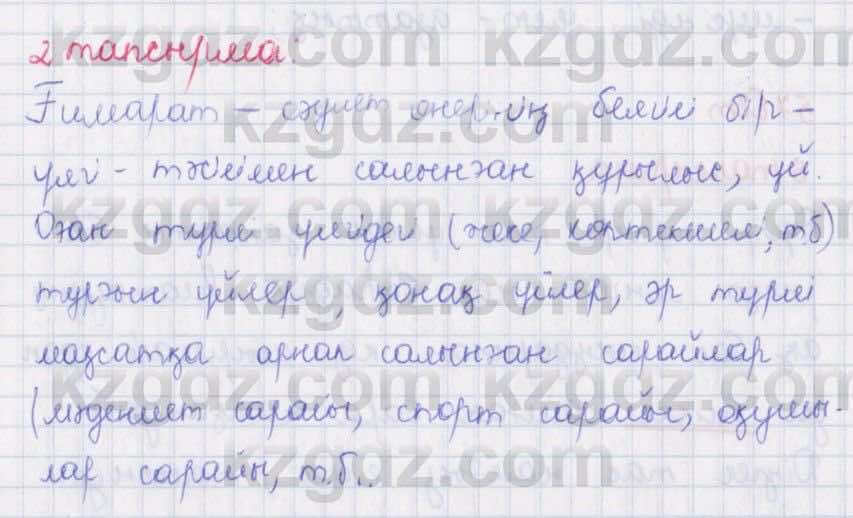 2 тапсырма:
Ғимарат – сәулет өнерінің белгілі бір –
үлгі - тәсілмен салынған құрылыс, үй.
Оған түрлі үлгідегі (жеке, көптекшелі, т.б)
тұрғын үйлер, қонақ үйлер, әр түрлі
мақсатқа арнап салынған сарайлар
(мәдениет сарайы, спорт сарайы, оқушы-
лар сарайы, т.б..
kzgdz.com